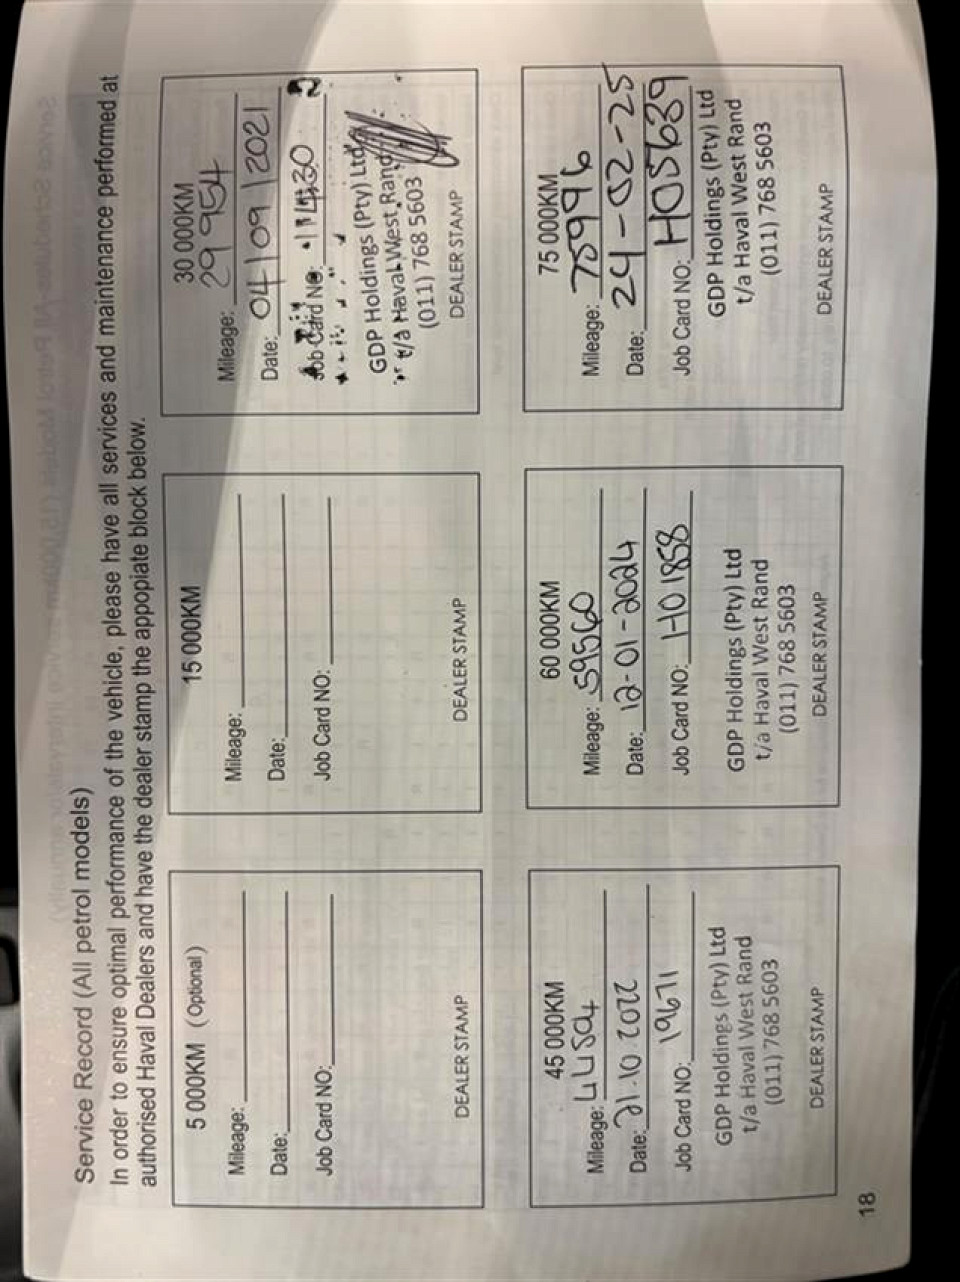 Service Record (All petrol models)
In order to ensure optimal performance of the vehicle, please have all services and maintenance performed at
authorised Haval Dealers and have the dealer stamp the appopiate block below.
5 000KM (Optional)
Mileage:
Date:
Job Card NO:
DEALER STAMP
15 000KM
Mileage:
Date:
Job Card NO:
DEALER STAMP
30 000KM
Mileage: 29954
Date: 04/09/2021
Job Card NO:
GDP Holdings (Pty) Ltd
t/a Haval West Rand
(011) 768 5603
DEALER STAMP
45 000KM
Mileage: 44504
Date: 21.10.2022
Job Card NO: 19671
GDP Holdings (Pty) Ltd
t/a Haval West Rand
(011) 768 5603
DEALER STAMP
60 000KM
Mileage: 59560
Date: 12-01-2024
Job Card NO: H01858
GDP Holdings (Pty) Ltd
t/a Haval West Rand
(011) 768 5603
DEALER STAMP
75 000KM
Mileage: 75996
Date: 24-02-25
Job Card NO: H05639
GDP Holdings (Pty) Ltd
t/a Haval West Rand
(011) 768 5603
DEALER STAMP
18